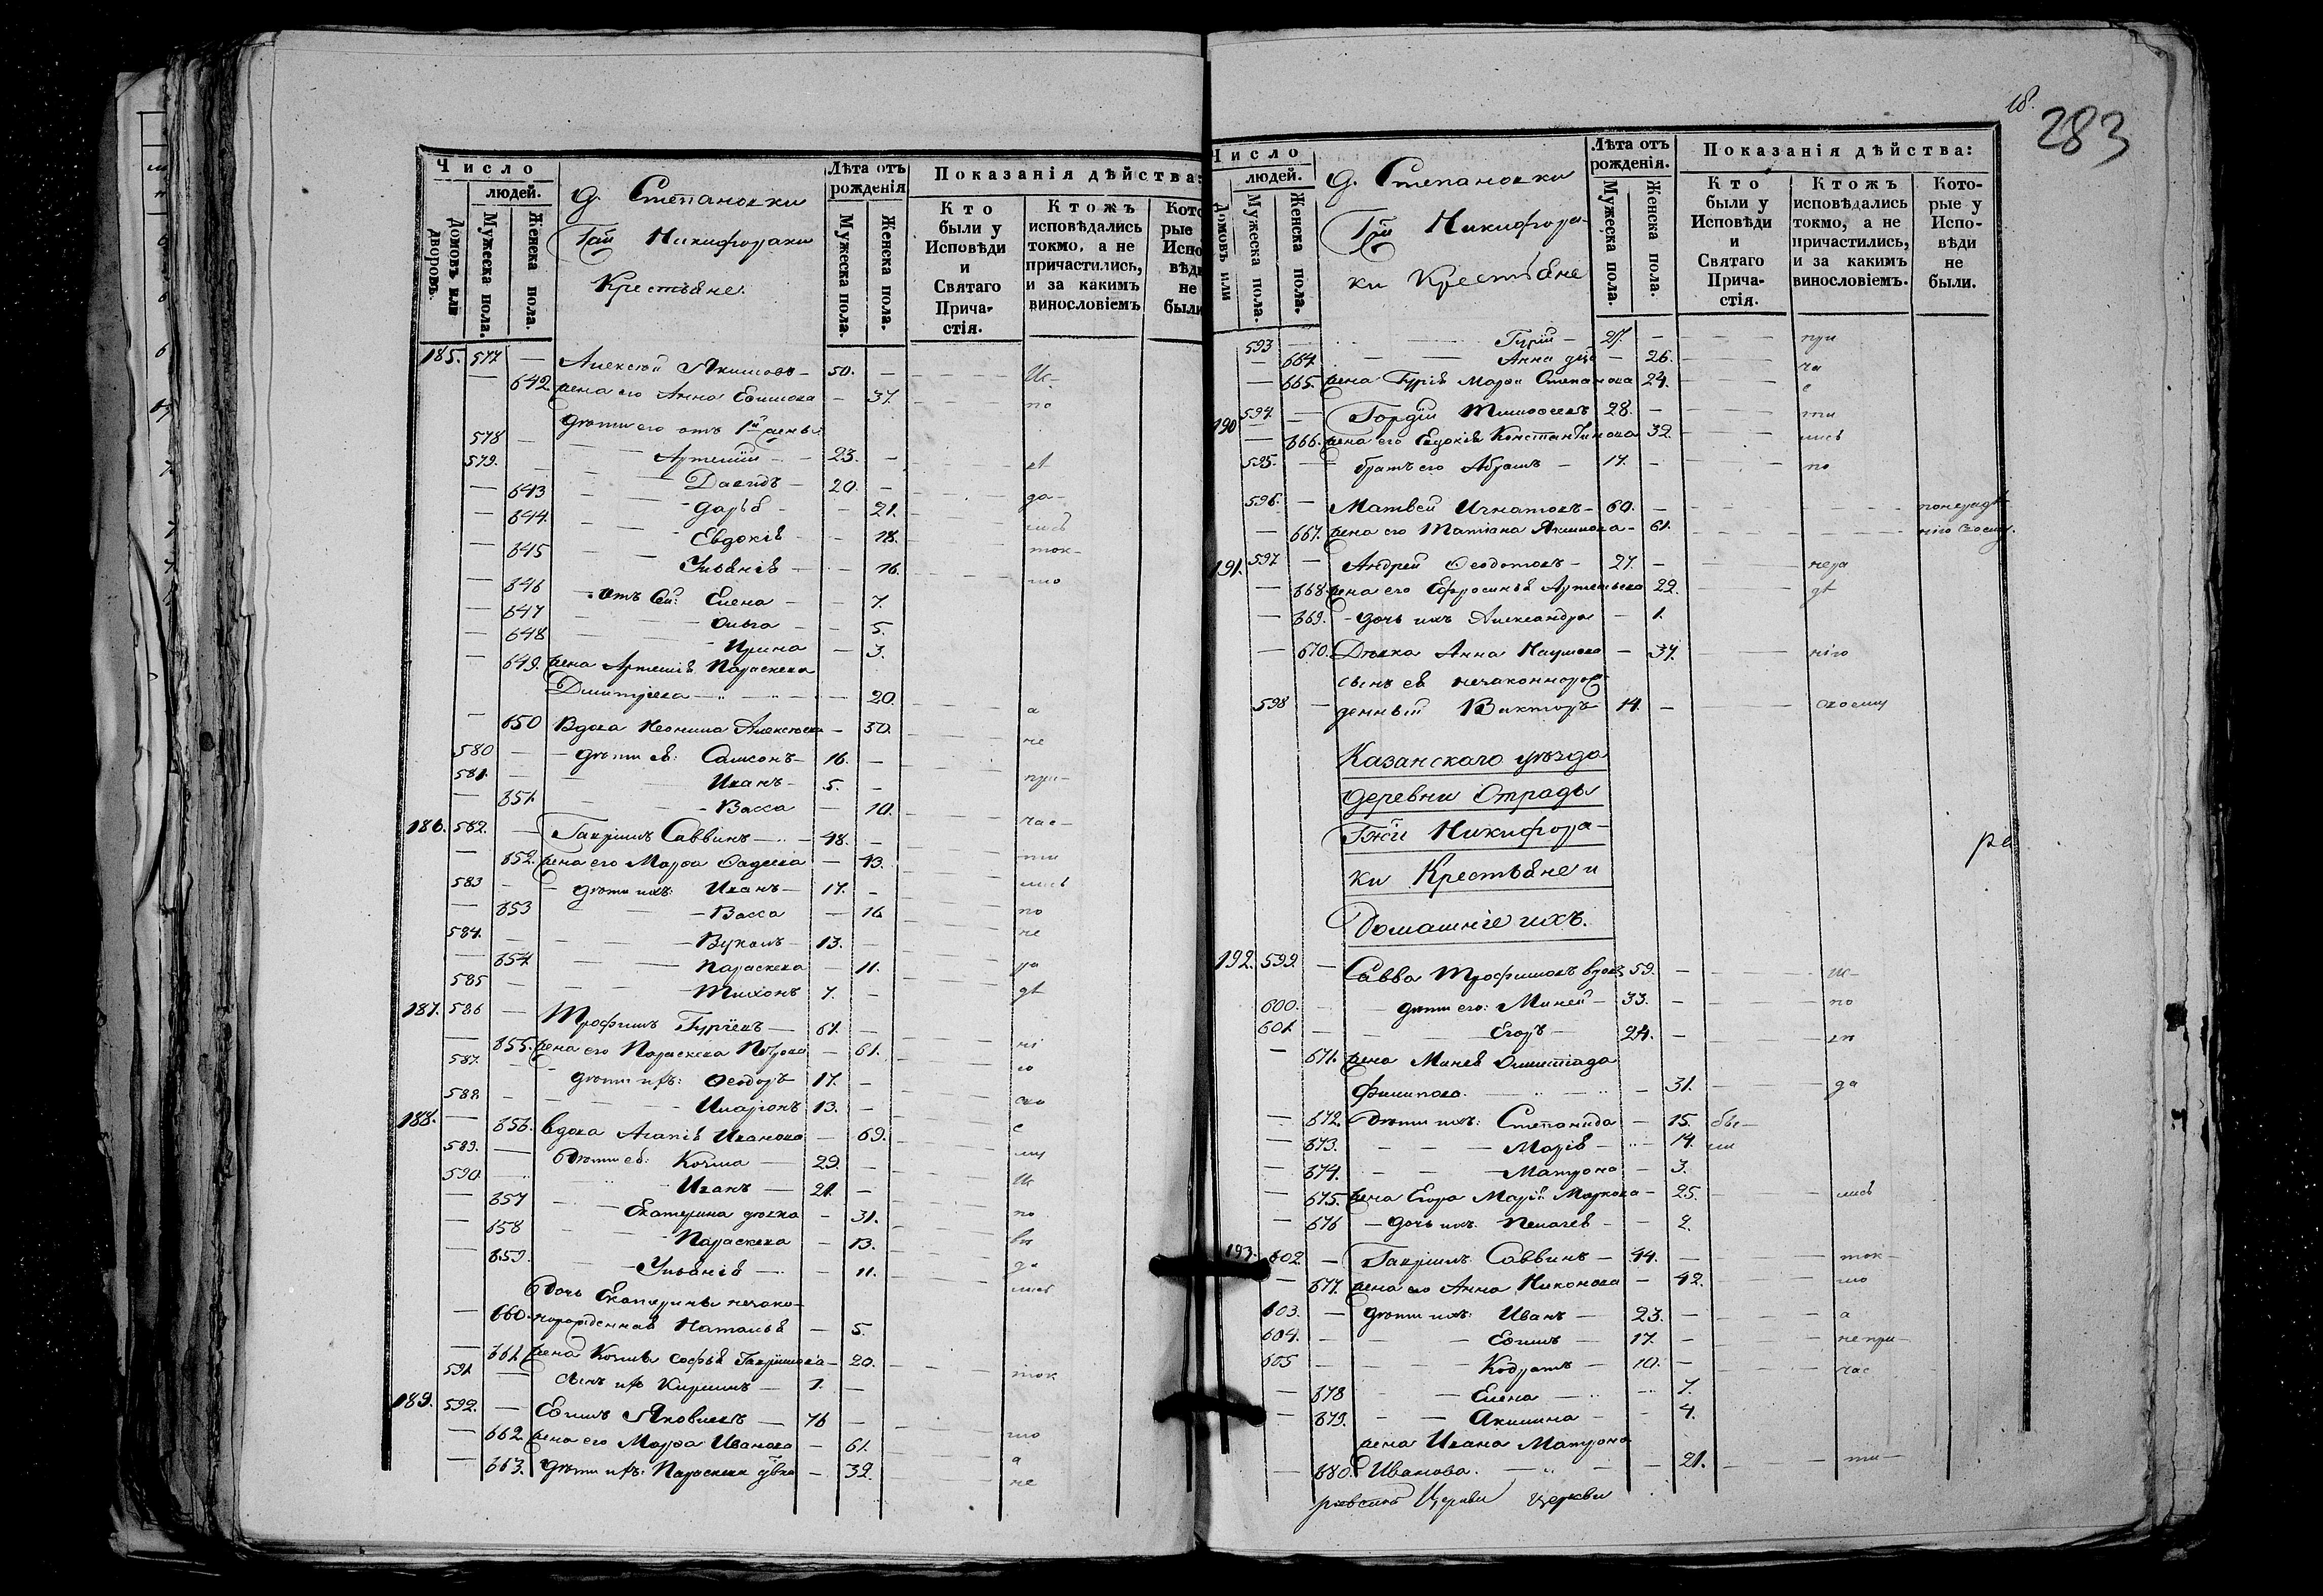 Число
людей.
Домовъ или дворовъ.
Мужеска пола.
Женска пола.
д. Степановки
Никифораки
Крестьяне.
Лѣта отъ рожденія
Мужеска пола.
Женска пола.
Показанія дѣйства:
Кто были у Исповѣди и Святаго Прича-стія.
Ктожъ исповѣдались токмо, а не причастились, и за какимъ винословіемъ
185. 577 — Алексѣй Якимовъ — 50. — Ис-
— 642 жена его Анна Ефимова — 37. по
дѣти его отъ 1й жены
578 — Артемій — 23. — вѣ
579. — Давидъ — 20. — да-
— 643 — Дарья — 21. лись
— 644. — Евдокія — 18. ток-
— 645 — Ульянія — 16. мо
— 646 — отъ сей: Елена — 7.
— 647 — Ольга — 5.
— 648 — Ирина — 3.
— 649. жена Артемія Параскева
Дмитріева — 20. а
— 650 Вдова Неонила Алексѣева — 50. не
580 — дѣти ея: Самсонъ — 16. — при-
581. — Иванъ — 5. —
— 651. — Васса — 10. час-
186. 582. — Гавріилъ Саввинъ — 48. — ти
— 652. жена его Марѳа Ѳадеева — 43. лись
583 — дѣти ихъ: Иванъ — 17. — по
— 653 — Васса — 16 не
584. — Вуколъ — 13. — ра
— 654 — Параскева — 11. дѣ
585 — Тихонъ 7. —
187. 586 — Трофимъ Гурїевъ — 61. — ні
— 655. жена его Параскева Петрова — 61. ю
587. — дѣти ихъ: Ѳеодоръ 17. — сво
588. — Иларіонъ 13. — е
188. — 656. Вдова Агапія Иванова — 69. му
589. — Дѣти ея: Козма — 29. — Ис
590. — Иванъ — 21. — по
— 657 — Екатерина дѣвка — 31. вѣ
— 658 — Параскева — 13. да
— 659. — Ульянія — 11. лись
Дочь Екатерины незако-
— 660. норожденная Наталья — 5.
— 661. жена Козмы Софья Гавріилова — 20. ток
591. — сынъ ихъ Кириллъ — 1. —
189. 592. — Ефимъ Яковлевъ — 76 — мо
— 662 жена его Марѳа Иванова — 61. а
— 663. дѣти ихъ: Параскева дѣвка — 32. не
18.
283
Число
людей.
Домовъ или
Мужеска пола.
Женска пола.
д. Степановки
Никифора-
ки Крестьяне
Лѣта отъ рожденія.
Мужеска пола.
Женска пола.
Показанія дѣйства:
Кто были у Исповѣди и Святаго Прича-стія.
Ктожъ исповѣдались токмо, а не причастились, и за какимъ винословіемъ.
Кото-рые у Испо-вѣди не были.
593 — Гурій — 27. — при
— 664. — Анна — 26. ча
— 665. жена Гурія Марѳа Степанова 24. с
190 594. — Гордій Тимоѳеевъ 28. — ти
— 666. жена его Евдокія Константинова 32. лись
595. — братъ его Абрамъ — 17. — по
596. — Матвей Игнатовъ — 60. — понерадѣ
— 667. жена его Татіана Якимова — 61. нію своему.
191. 597 — Андрей Ѳеодотовъ — 27. — нера
— 668. жена его Ефросинья Артемьева 22. дѣ
— 669. — дочь ихъ Александра — 1.
— 670. Дѣвка Анна Наумова — 37. нію
сынъ ея незаконнорож
598 — денный Викторъ 14. — своему
Казанскаго уѣзда
деревни Отрады
Гжи Никифора-
ки Крестьяне и
Домашніе ихъ.
192. 599. — Савва Трофимовъ вдовъ 59. — Ис-
600. — дѣти его: Миней — 33. — по
601. — Егоръ — 24. — вѣ
— 671. жена Минея Олимпіада
Филипова. — 31. да
— 672. Дѣти ихъ: Степанида — 15. бы-
— 673. — Марія — 14. ли
— 674. — Матрона — 3.
— 675. жена Егора Марія Маркова — 25. лись
— 676 — дочь ихъ Пелагея — 2.
193. 602. — Гавріилъ Саввинъ — 44. — ток-
— 677. жена его Анна Никонова — 42. мо
603. — дѣти ихъ: Иванъ — 23. — а
604. — Ефимъ — 17. — не при-
605 — Кодратъ — 10. — час
— 678 — Елена — 7.
— 679. — Акилина — 4.
жена Ивана Матрона
— 680. Иванова. — 21. ти-
Церкви церкви